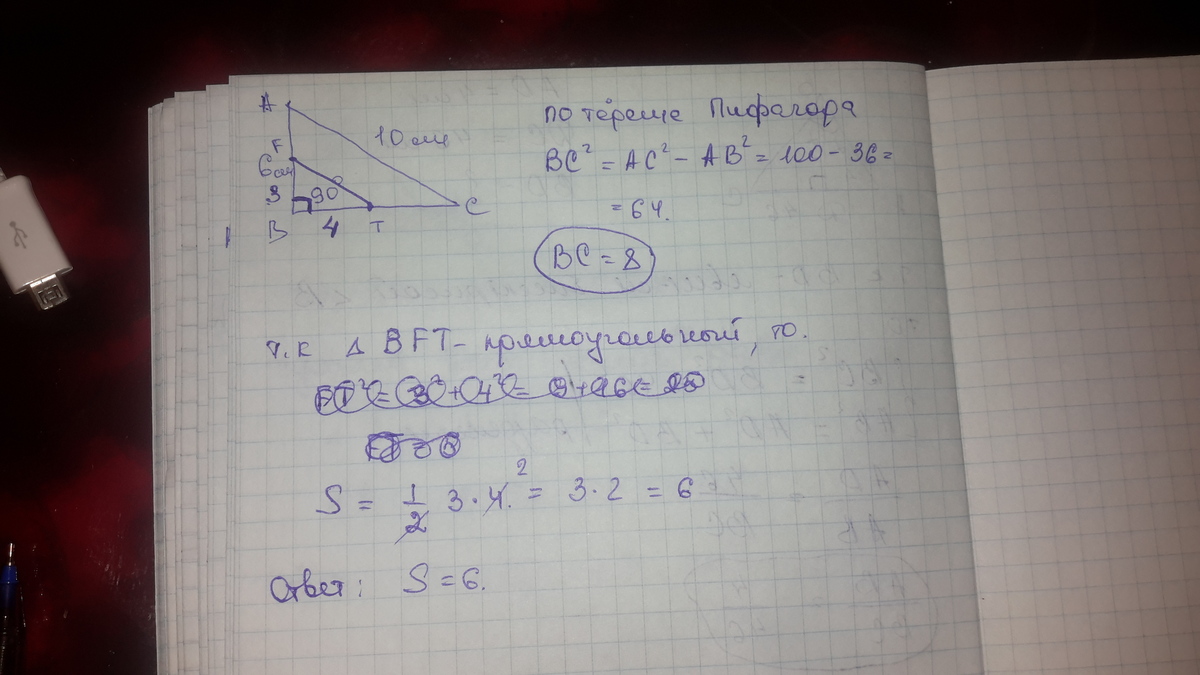 A
F
10 см
6см
3
90°
B
4
T
C
по теореме Пифагора
BC² = AC² - AB² = 100 - 36 =
= 64.
BC = 8
т.к Δ BFT - прямоугольный, то.
S = 1/2 3 · 4. 2 = 3 · 2 = 6
Ответ: S = 6.